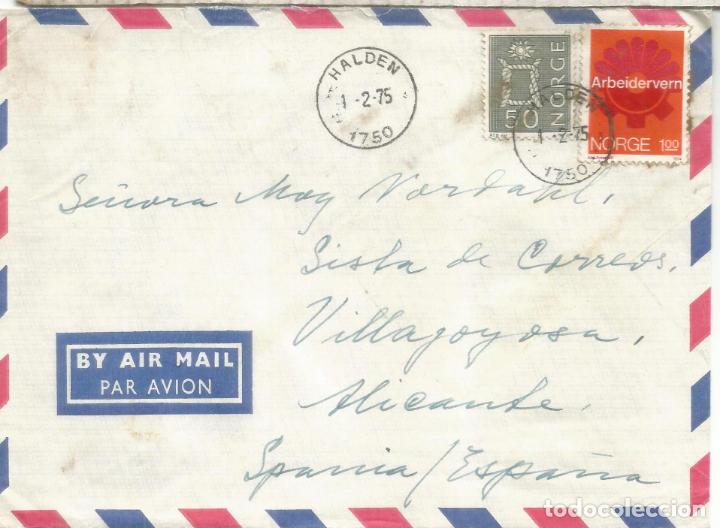 HALDEN
1-2-75
1750
50
NORGE
Arbeidervern
NORGE 100
HALDEN
1-2-75
1750
Señora Moy Nordahl,
Lista de Correos,
Villagoyosa,
Alicante.
Spania/España
BY AIR MAIL
PAR AVION
todocoleccion.net